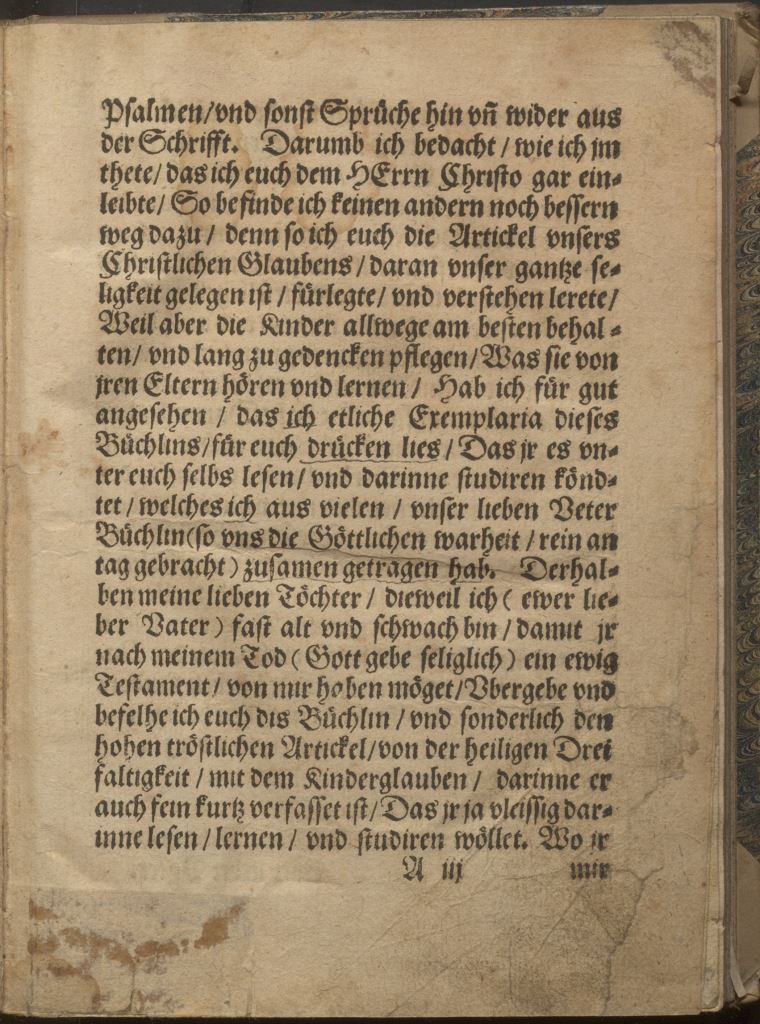 Psalmen/vnd sonst Sprüche hin vñ wider aus
der Schrifft. Darumb ich bedacht / wie ich jm
thete/ das ich euch dem HErrn Christo gar ein⸗
leibte/ So befinde ich keinen andern noch bessern
weg dazu / denn so ich euch die Artickel vnsers
Christlichen Glaubens / daran vnser gantze se⸗
ligkeit gelegen ist / fürlegte/ vnd verstehen lerete/
Weil aber die Kinder allwege am besten behal⸗
ten/ vnd lang zu gedencken pflegen/Was sie von
jren Eltern hören vnd lernen / Hab ich für gut
angesehen / das ich etliche Exemplaria dieses
Büchlins/für euch drücken lies / Das jr es vn⸗
ter euch selbs lesen/ vnd darinne studiren könd⸗
tet / welches ich aus vielen / vnser lieben Veter
Büchlin(so vns die Göttlichen warheit / rein an
tag gebracht) zusamen getragen hab. Derhal⸗
ben meine lieben Töchter / dieweil ich ( ewer lie⸗
ber Vater) fast alt vnd schwach bin / damit jr
nach meinem Tod ( Gott gebe seliglich ) ein ewig
Testament / von mir haben möget/Vbergebe vnd
befelhe ich euch dis Büchlin / vnd sonderlich den
hohen tröstlichen Artickel/von der heiligen Drei
faltigkeit / mit dem Kinderglauben / darinne er
auch fein kurtz verfasset ist/ Das jr ja vleissig dar⸗
inne lesen / lernen / vnd studiren wöllet. Wo jr
A iij mir